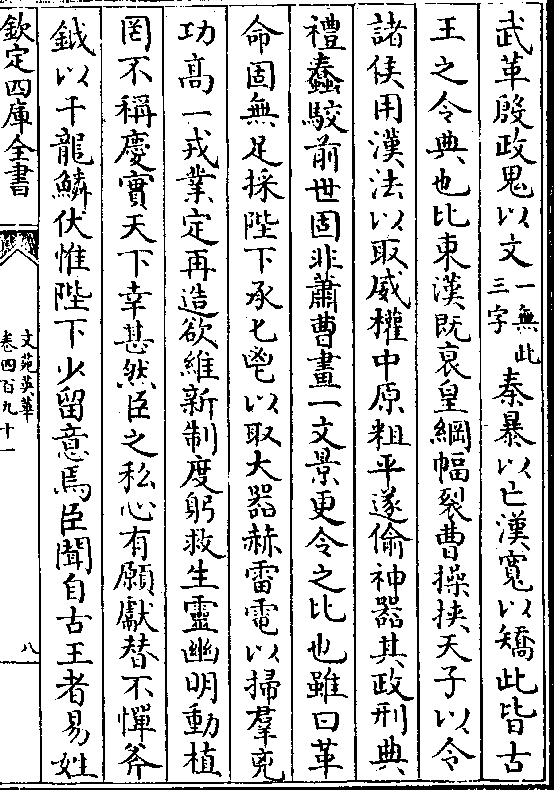 武革殷政鬼以文一無此三字秦暴以亡漢寛以矯此皆古
王之令典也比東漢既衰皇綱幅裂曹操挟天子以令
諸侯用漢法以取威權中原粗平遂偷神器其政刑典
禮蠢駮前世固非蕭曹畫一文景更令之比也雖曰革
命固無足採陛下承七鬯以取大器赫雷電以掃羣兇
功髙一戎業定再造欲維新制度躬救生靈幽明動植
罔不稱慶實天下幸甚然臣之私心有願獻替不憚斧
鉞以干龍鱗伏惟陛下少留意焉臣聞自古王者易姓
欽定四庫全書
文苑英華
卷四百九十一
八